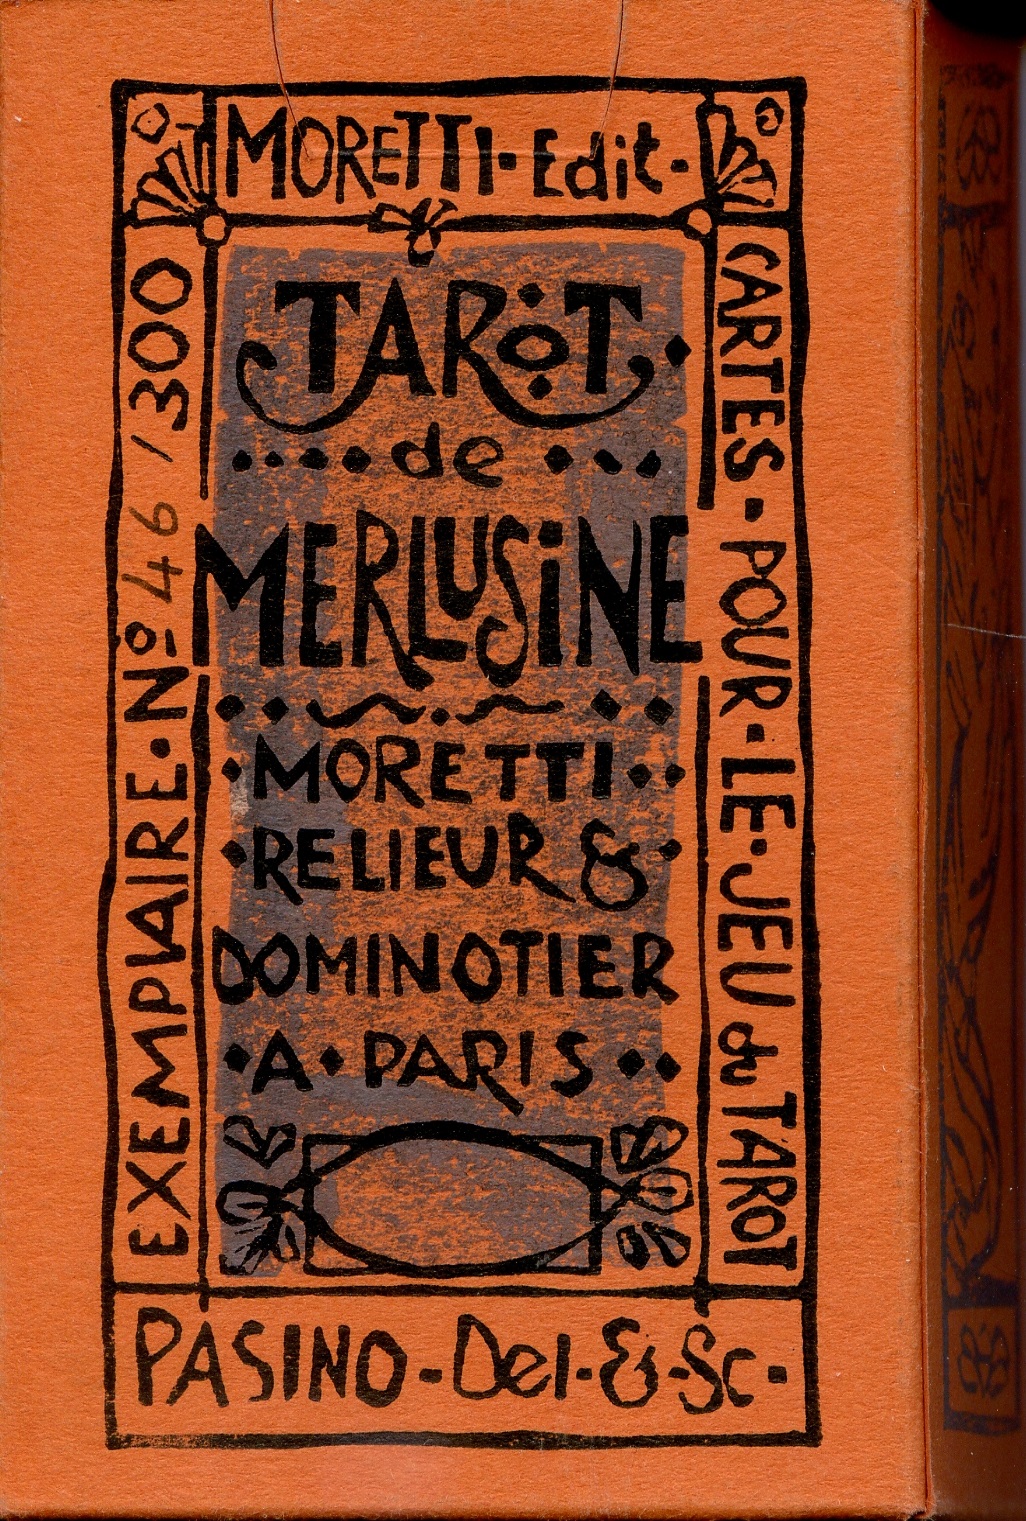 MORETTI · Edit ·
TAROT
de
MERLUSINE
MORETTI
RELIEUR &
DOMINOTIER
A · PARIS
EXEMPLAIRE · No 46 /300
CARTES · POUR · LE · JEU du TAROT
PASINO · Del · & · Sc ·